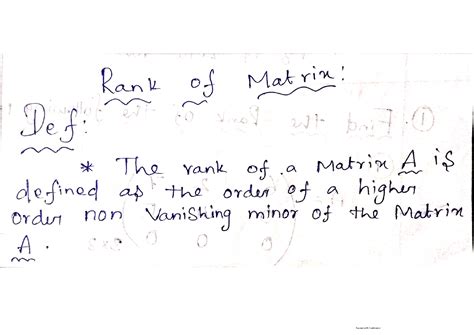 Rank of Matrix:
Def:
* The rank of a Matrix A is
defined as the order of a higher
order non Vanishing minor of the Matrix
A.